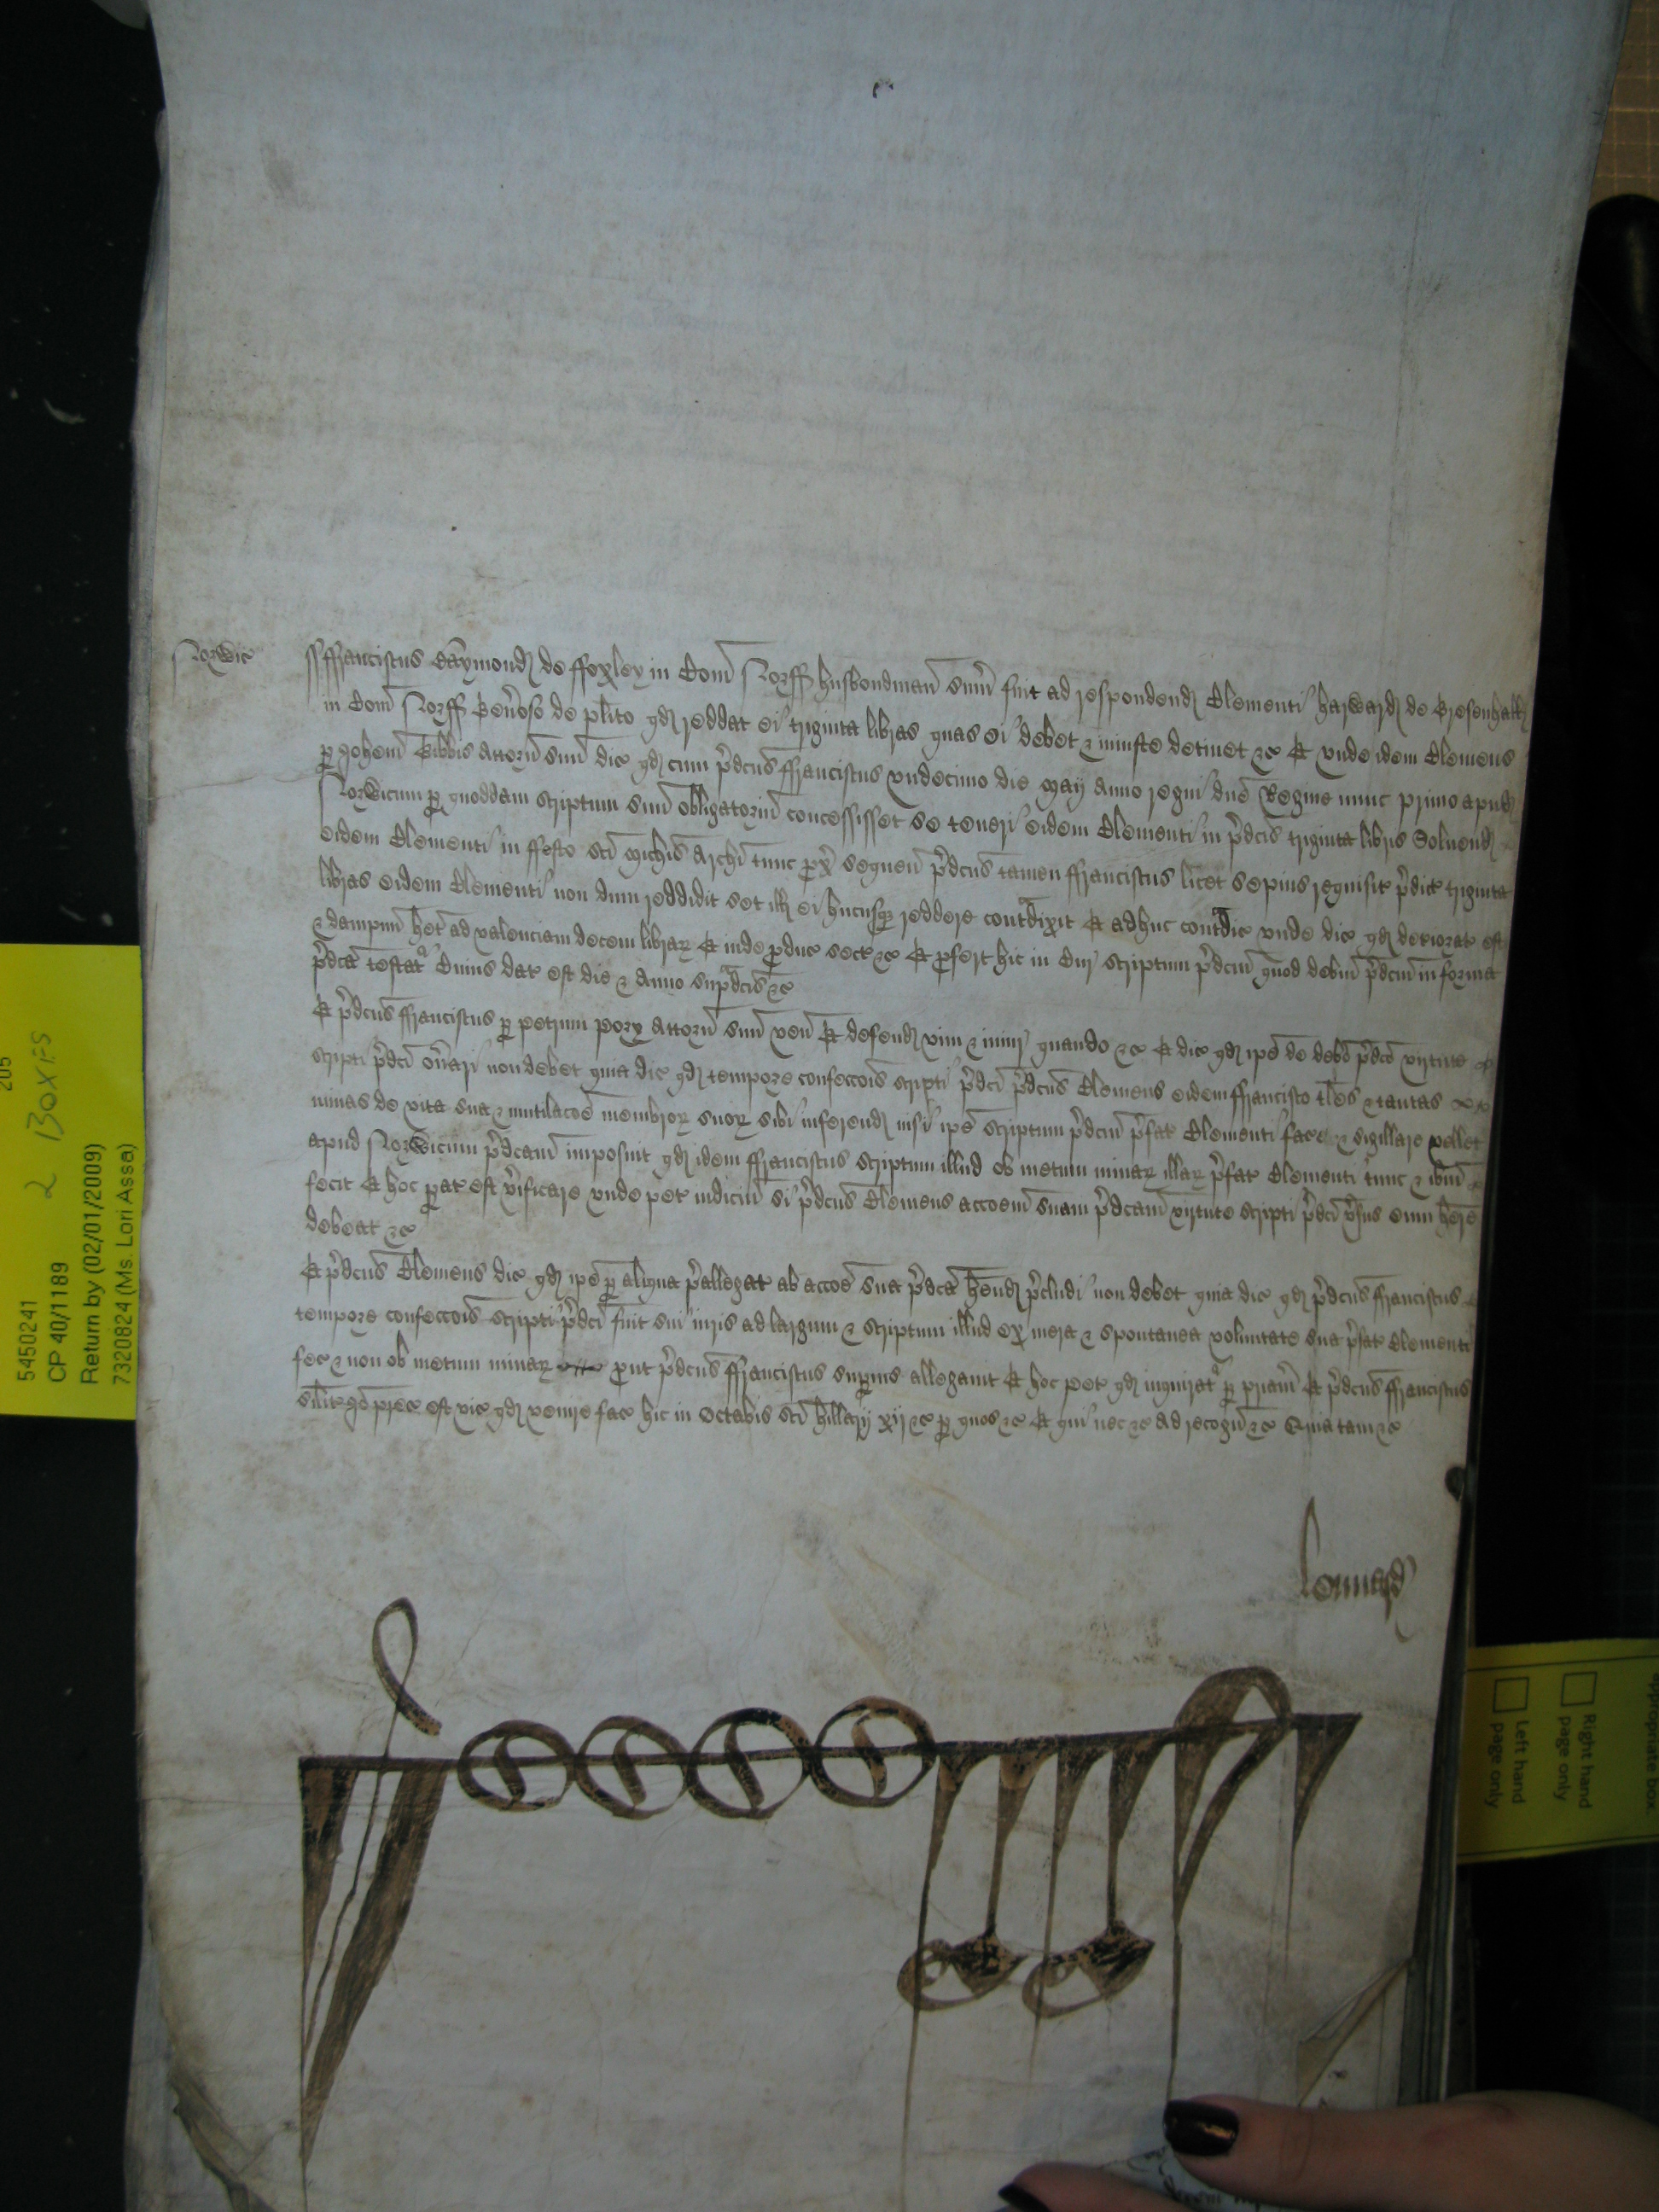 Norwic
ss ffranciscus Raymond de ffoxley in Com Norff husbondman sum fuit ad respondend Clementi harward de Bresenhall
in Com Norff Gen̄oso de plito qd reddat ei triginta libras quas ei debet & iniuste detinet &c Et unde idem Clemens
p Johem Gibbis Attorn suu dic qd cum p̄dcus ffranciscus undecimo die Maij Anno regni dne Regine nunc primo apud
Norwicum p quoddam scriptum suu obligatoriu concessisset se teneri eidem Clementi in p̄dcis triginta libris Solvend
eidem Clementi in ffesto sci Michis Archi tunc px sequen p̄dcus tamen ffranciscus licet sepius requisit p̄dict triginta
libras eidem Clementi non dum reddidit set ill ei hucusq reddere contdixit Et adhuc contdic unde dic qd deteriorat est
& dampnu het ad valenciam decem librar Et inde pduc sect &c Et pfert hic in Cur scriptum p̄dcm quod debm p̄dcm in forma
p̄dca testat Cuius dat est die & Anno sup̄dcis &c
Et p̄dcus ffranciscus p petrum Attorn suu ven Et defend vim & iniur quando &c Et dic qd ipe de debo p̄dco virtute
scripti p̄dci on̄ari non debet quia dic qd tempore confeccois scripti p̄dci p̄dcus Clemens eidem ffrancisco tles & tantas
minas de vita sua & mutilacoe membror suor sibi inferend nisi ipe scriptum p̄dcm p̄fat Clementi facē & sigillare vellet
apud Norwicum p̄dcam imposuit qd idem ffranciscus scriptum illud ob metum minar illar p̄fat Clementi tunc & ibm
fecit Et hoc pat est v̄ificare unde pet iudiciu si p̄dcus Clemens accoem suam p̄dcam virtute scripti p̄dci v̄sus eum here
debeat &c
Et p̄dcus Clemens dic qd ipe p aliqua p̄allegat ab accoe sua p̄dca hend p̄cludi non debet quia dic qd p̄dcus ffranciscus
tempore confeccois scripti p̄dci fuit sui iuris ad largum & scriptum illud ex mera & spontanea voluntate sua p̄fat Clementi
fec & non ob metum minar put p̄dcus ffranciscus supius allegavit Et hoc pet qd inquirat p priam Et p̄dcus ffranciscus
silit Io p̄c est vic qd venire fac hic in Octabis sci hillarij xij &c p quos &c Et qui nec &c Ad recogn &c Quia tam &c
5450241
CP 40/1189
Return by (02/01/2009)
7320824 (Ms. Lori Assa)
205
2 Boxies
appropriate box.
Right hand
page only
Left hand
page only